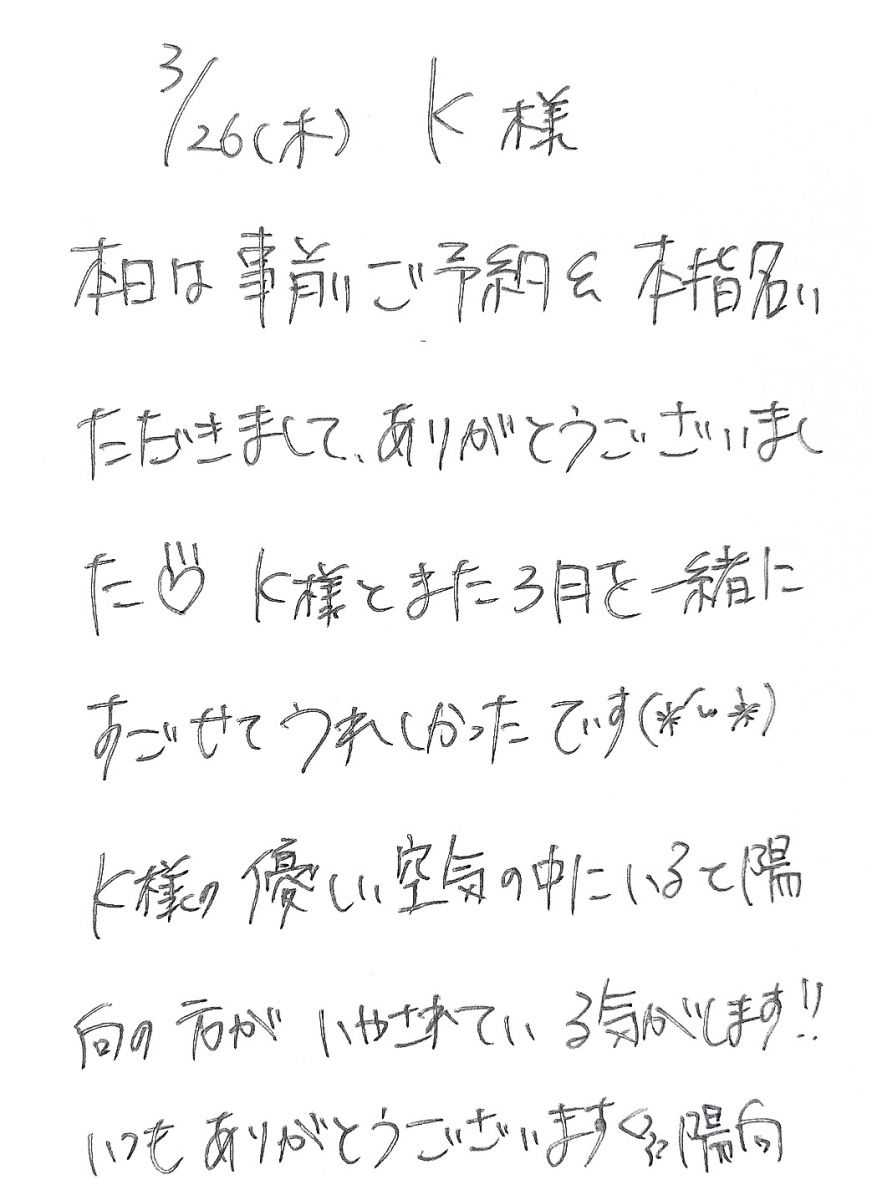 3/26(木) K様
本日は事前ご予約&本指名い
ただきまして、ありがとうございまし
た♡ K様とまた3月を一緒に
すごせてうれしかったです(*´ω*)
K様の優しい空気の中にいると陽
向の方がいやされている気がします!!
いつもありがとうございます 陽向